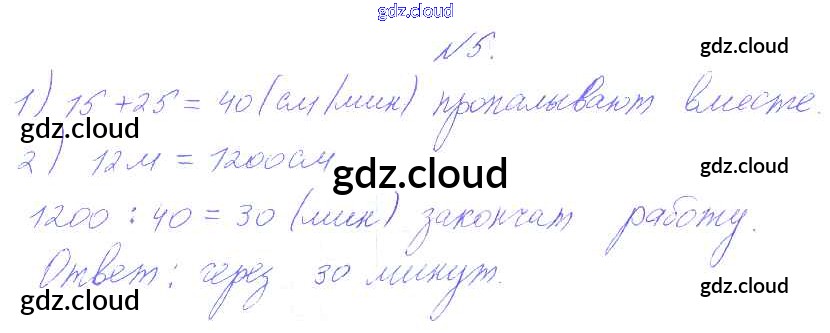 gdz.cloud
№5.
gdz.cloud
1) 15+25=40(см/мин) пропалывают вместе.
gdz.cloud gdz.cloud
2) 12м=1200см
gdz.cloud
1200:40=30(мин) закончат работу.
Ответ: через 30 минут.
gdz.cloud gdz.cloud gdz.cloud